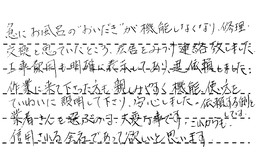 急にお風呂の"おいだき"が機能しなくなり、修理
交換を思っていたところ、広告をみつけ連絡致しました。
工事費用も明確に表示しており、即依頼しました。
作業に来て下さった方も親しみやすく機能、使い方と
ていねいに説明して下さり、安心しました。依頼する側と
業者さんを選ぶのは大変な事です。これからも
信用される会社であって欲しいと思います